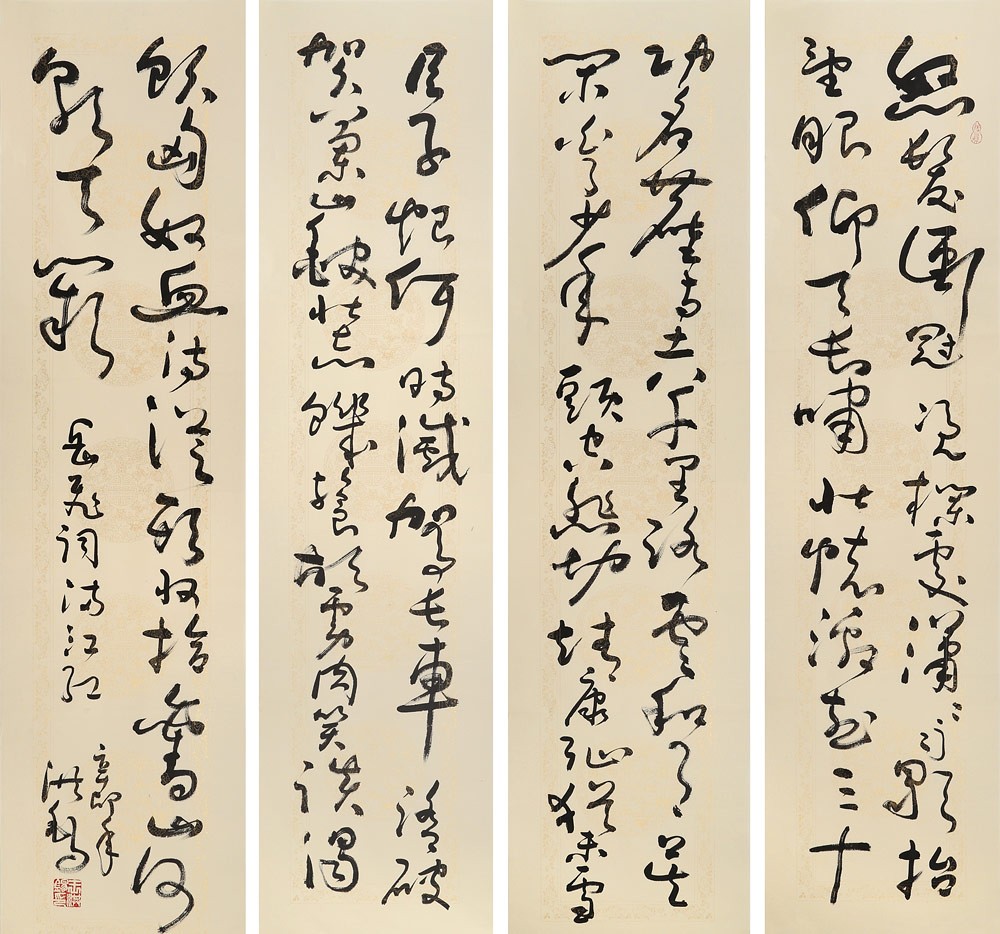 怒髮衝冠憑欄處瀟瀟雨歇抬
望眼仰天長嘯壯懷激烈三十
功名塵与土八千里路雲和月莫
閑等白了少年頭空悲切靖康恥猶未雪
臣子恨何時滅駕長車踏破
賀蘭山缺壯志飢餐胡虜肉笑談渴
飲匈奴血待從頭收拾舊山河
朝天闕
岳飛詞滿江紅
辛卯年
洪